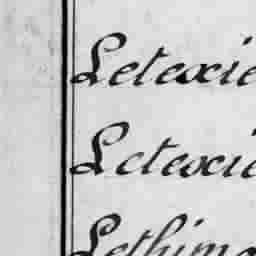 Letexie
Letexie
Lethima